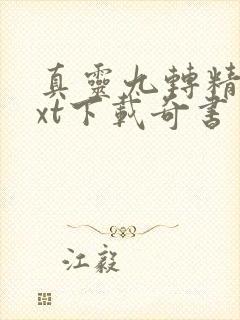 真靈九轉精
xt下載奇書
江毅